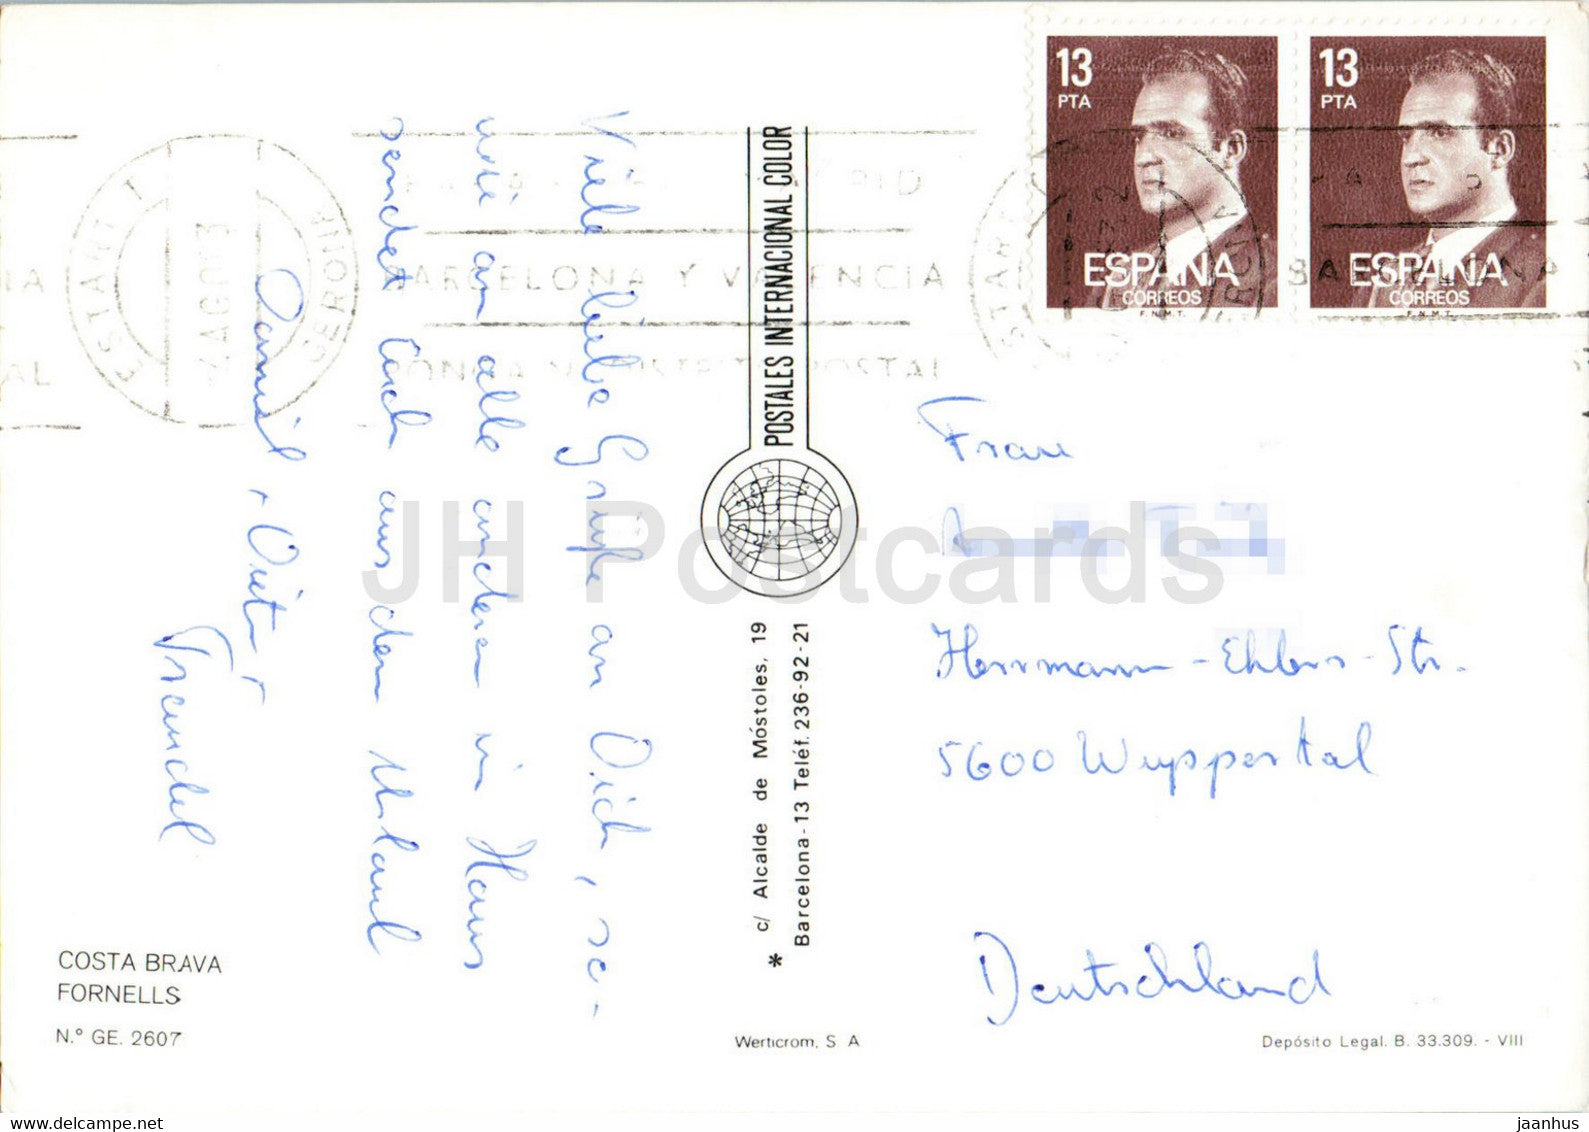 Viele liebe Grüße an Dich, so-
wie an alle anderen im Haus
sendet Euch aus dem Urlaub
Trendel
POSTALES INTERNACIONAL COLOR
* c/ Alcalde de Móstoles, 19
Barcelona-13 Teléf. 236-92-21
13
PTA
ESPAÑA
CORREOS
F.N.M.T.
13
PTA
ESPAÑA
CORREOS
F.N.M.T.
ESTARTIT
GERONA
BARCELONA Y VALENCIA
PONGA DISTRITO POSTAL
Frau
Herrmann-Ehlers-Str.
5600 Wuppertal
Deutschland
COSTA BRAVA
FORNELLS
N.º GE. 2607
Werticrom, S A
Depósito Legal. B. 33.309. - VIII
JH Postcards
jaanhus